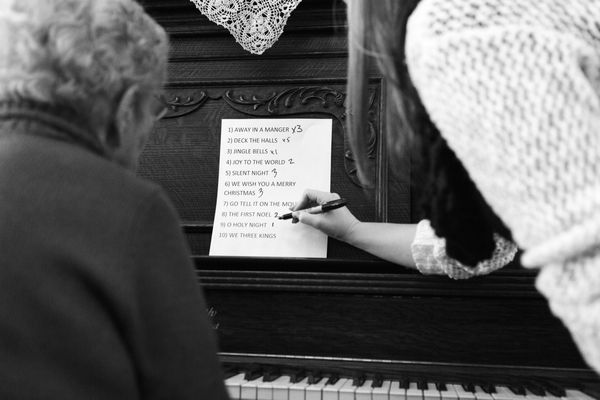 1) AWAY IN A MANGER x3
2) DECK THE HALLS x5
3) JINGLE BELLS x1
4) JOY TO THE WORLD 2
5) SILENT NIGHT 3
6) WE WISH YOU A MERRY
CHRISTMAS 3
7) GO TELL IT ON THE
8) THE FIRST NOEL 2
9) O HOLY NIGHT 1
10) WE THREE KINGS